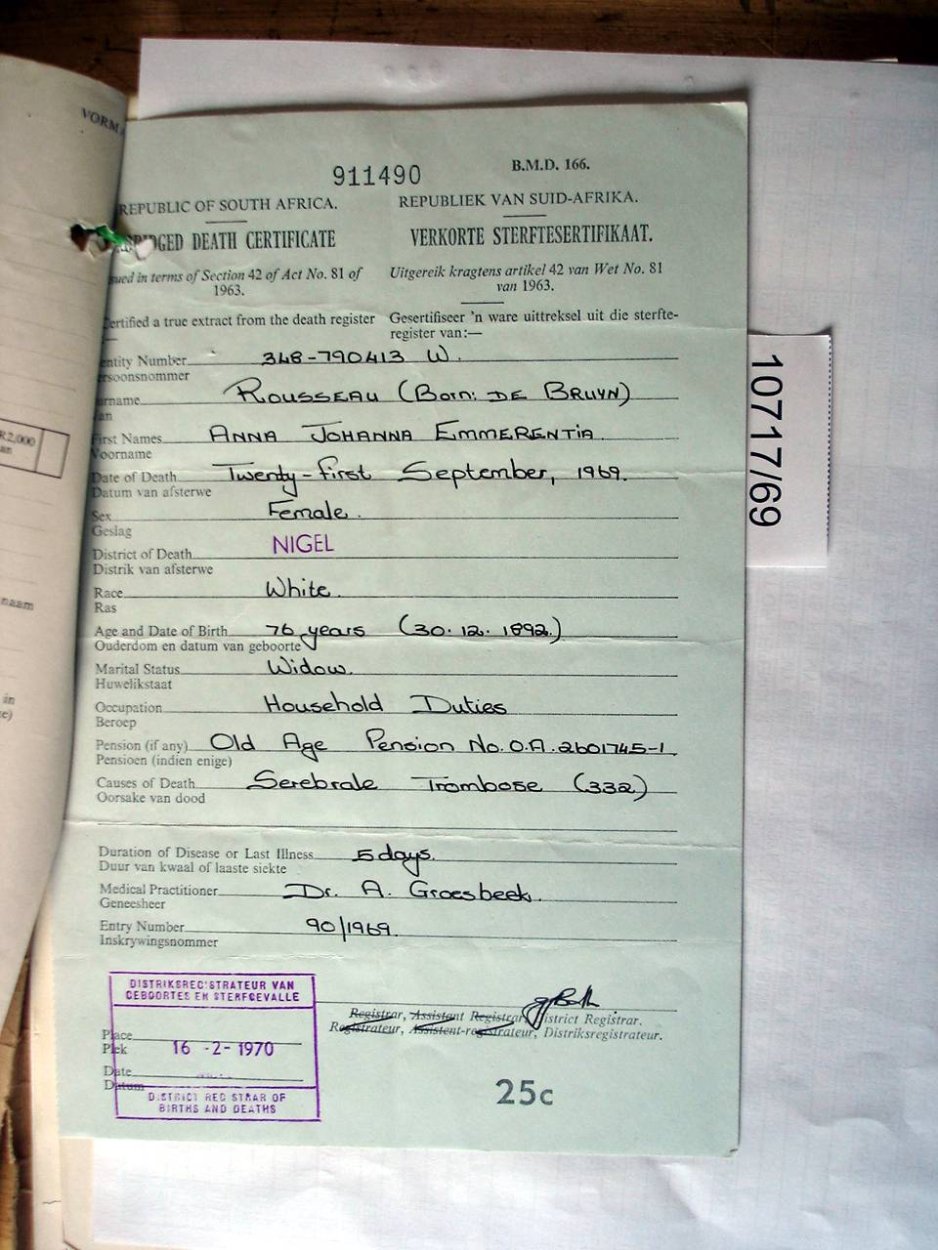 VORM
911490
B.M.D. 166.
REPUBLIC OF SOUTH AFRICA.
REPUBLIEK VAN SUID-AFRIKA.
DGED DEATH CERTIFICATE
VERKORTE STERFTESERTIFIKAAT.
sued in terms of Section 42 of Act No. 81 of
1963.
Uitgereik kragtens artikel 42 van Wet No. 81
van 1963.
Certified a true extract from the death register
Gesertifiseer 'n ware uittreksel uit die sterfte-
register van:—
entity Number 348-790413 W.
ersoonsnommer
urname ROUSSEAU (Born: DE BRUYN)
an
First Names ANNA JOHANNA EMMERENTIA
Voorname
Date of Death Twenty-first September, 1969.
Datum van afsterwe
Sex Female.
Geslag
District of Death NIGEL
Distrik van afsterwe
Race White.
Ras
Age and Date of Birth 76 years (30.12.1892.)
Ouderdom en datum van geboorte
Marital Status Widow.
Huwelikstaat
Occupation Household Duties
Beroep
Pension (if any) Old Age Pension No. O.A. 2601745-1
Pensioen (indien enige)
Causes of Death Serebrale Trombose (332)
Oorsake van dood
Duration of Disease or Last Illness 5 days.
Duur van kwaal of laaste siekte
Medical Practitioner Dr. A. Groesbeek.
Geneesheer
Entry Number 90/1969.
Inskrywingsnommer
DISTRIKSREGISTRATEUR VAN
GEBOORTES EN STERFGEVALLE
Registrar, Assistant Registrar, District Registrar.
Registrateur, Assistent-registrateur, Distriksregistrateur.
Place
Plek
16 -2- 1970
Date
Datum
DISTRICT REGISTRAR OF
BIRTHS AND DEATHS
25c
10717/69
R2,000
an
naam
in
e)